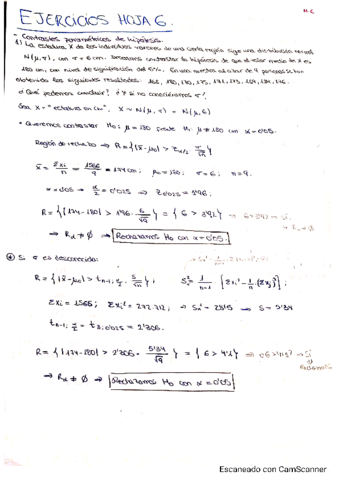 EJERCICIOS HOJA 6.
- Contrastes paramétricos de hipótesis.
1) La estatura X de los individuos varones de una cierta región sigue una distribución normal
N(μ,σ), con σ = 6 cm. Deseamos contrastar la hipótesis de que el valor medio de X es
180 cm, con nivel de significación del 5%. En una muestra al azar de 9 personas se han
obtenido los siguientes resultados:
¿Qué podemos concluir? ¿Y si no conociéramos σ?
Sea X = "estatura en cm", X ~ N(μ,σ) = N(μ,6)
• Queremos contrastar H₀: μ = 180 frente H₁: μ ≠ 180 con α = 0'05
Región de rechazo → R = { |x̄ - μ₀| > Z_{α/2} · σ/√n }
x̄ = Σxi/n = 1566/9 = 174 cm; μ₀ = 180; σ = 6; n = 9.
α = 0'05 → α/2 = 0'025 → Z_{0'025} = 1'96.
R = { |174 - 180| > 1'96 · 6/√9 } = { 6 > 3'92 } → 6 > 3'92 → Sí
⇒ R_α ≠ ∅ → Rechazamos H₀ con α = 0'05.
* Si σ es desconocida:
R = { |x̄ - μ₀| > t_{n-1; α/2} · S/√n }; S² = 1/(n-1) · { Σxi² - 1/n (Σxi)² }
Σxi = 1566; Σxi² = 272.712; → S² = 28'5 → S = 5'34
t_{n-1; α/2} = t_{8; 0'025} = 2'306.
R = { |174 - 180| > 2'306 · 5'34/√9 } = { 6 > 4'1 } → ¿6 > 4'1? → Sí
→ R_α ≠ ∅ → Rechazamos H₀ con α = 0'05
Escaneado con CamScanner